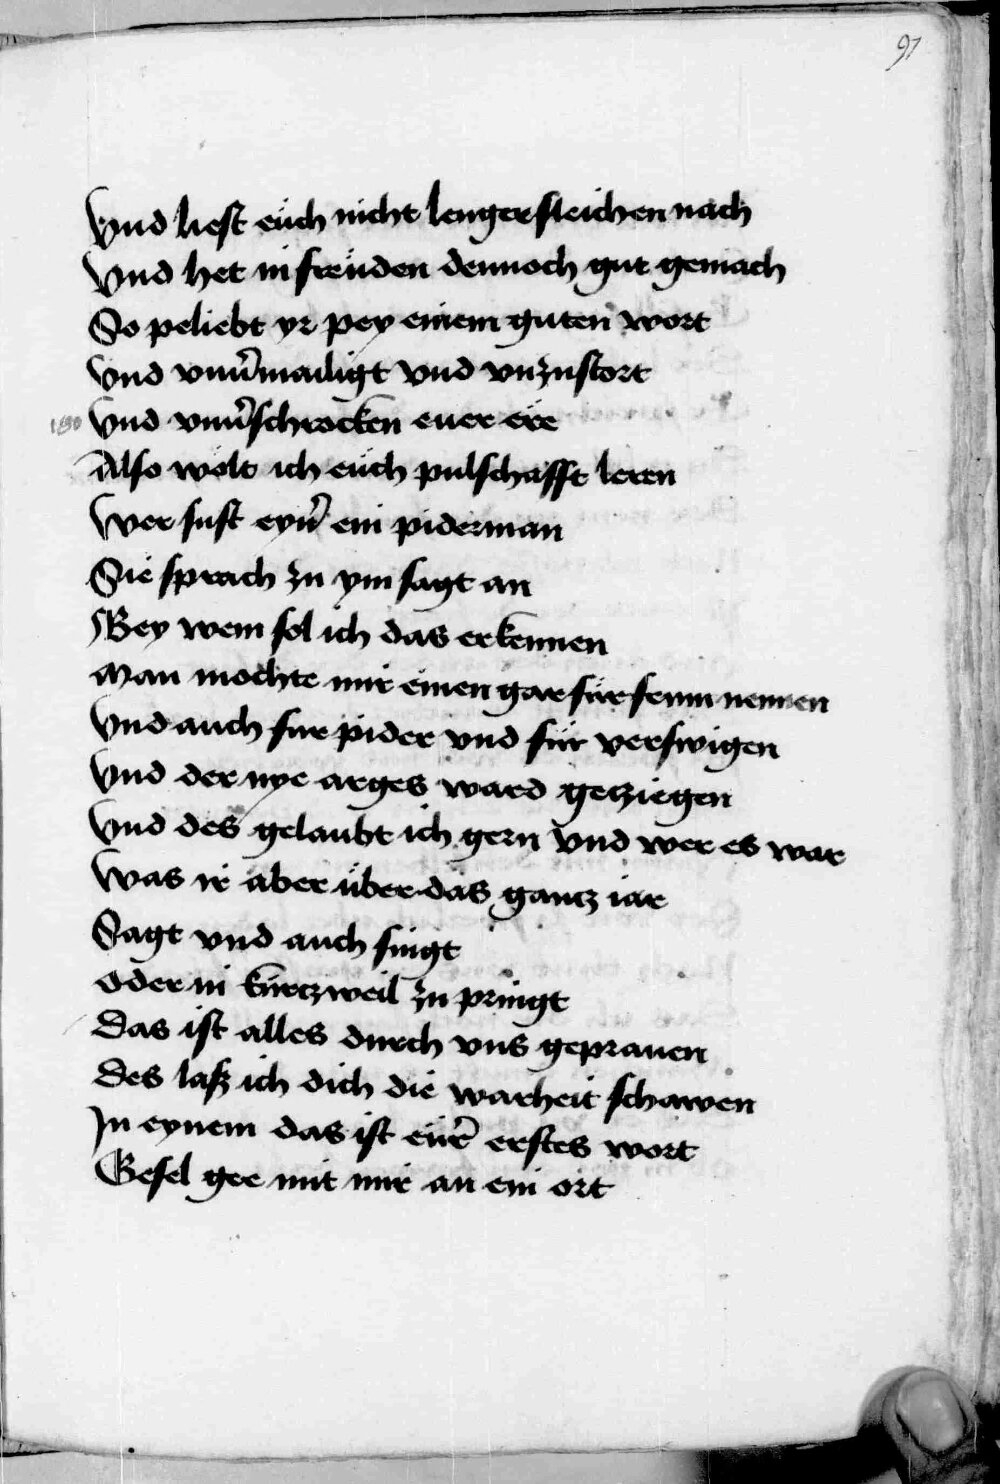 97
Vnd liest euch nicht lenger sleichen nach
Vnd het in freuden dennoch gut gemach
So peliebt yr pey einem guten wort
Vnd vnuermailigt vnd vnzustort
180 Vnd vnuerschrocken euer ere
Also wolt ich euch pulschafft leren
Wer sust eyner ein piderman
Sie sprach zu ym sagt an
Bey wem sol ich das erkennen
Man mochte mir einen gar für frum nennen
Vnd auch fur pider vnd für verswigen
Vnd der nye arges ward getziegen
Vnd des gelaubt ich gern vnd wer es war
Was ir aber über das gantz iar
Sagt vnd auch singt
Oder in kürtzweil zu pringt
Das ist alles durch vns geprauen
Des lasz ich dich die warheit schawen
In eynem das ist eur erstes wort
Gesel gee mit mir an ein ort